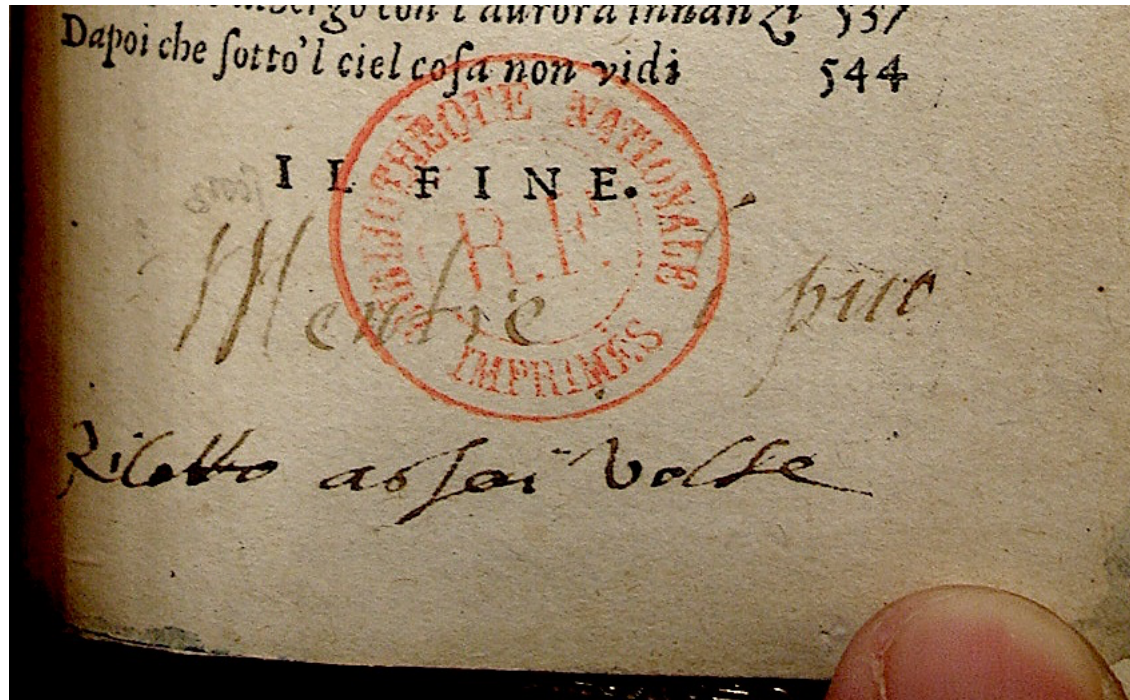 albergo con l'aurora innanzi 537
Dapoi che ſotto'l ciel coſa non vidi 544
IL FINE.
BIBLIOTHÈQUE NATIONALE
R.F.
IMPRIMÉS
Mentre puo
Riletto asſai volte